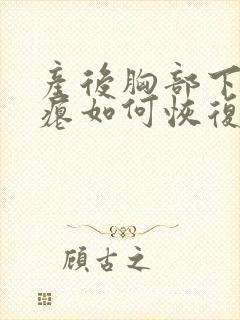 產後胸部下
瘪如何恢復
顧古之